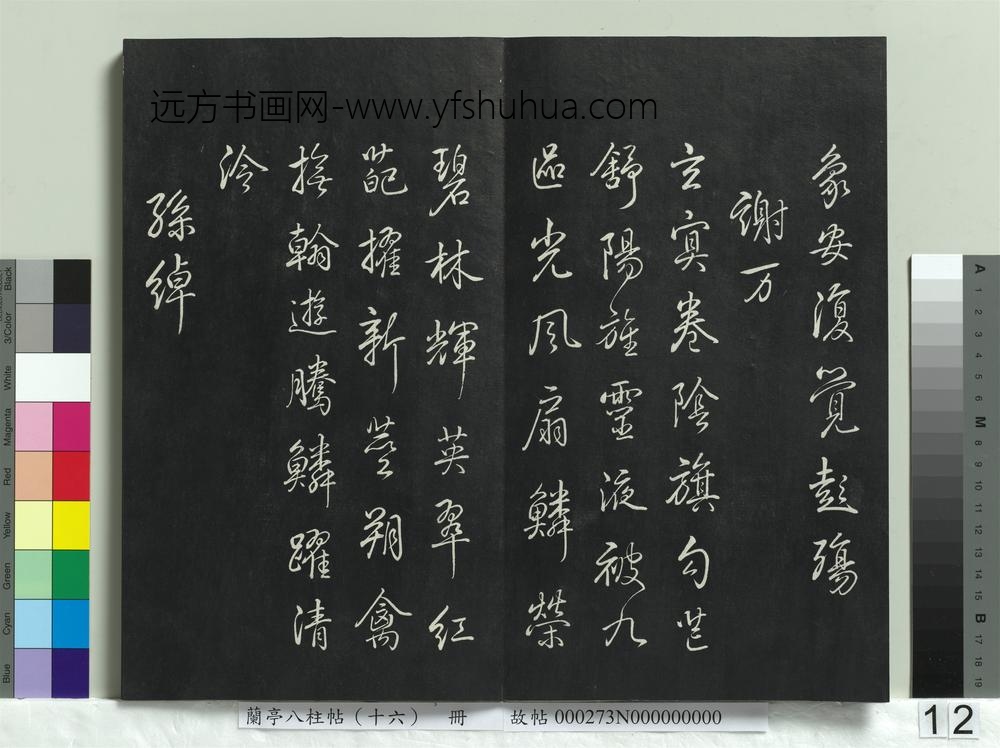 远方书画网-www.yfshuhua.com
象安復覺彭殤
謝万
玄冥卷陰旗勾芒
舒陽旌靈液被九
區光風扇鱗榮
碧林輝英翠紅
葩擢新莖翔禽
撫翰遊騰鱗躍清
泠
孫綽
蘭亭八柱帖（十六） 冊 故帖 000273N000000000
12
Black
3/Color
White
Magenta
Red
Yellow
Green
Cyan
Blue
A 1 2 3 4 5 6 M 8 9 10 11 12 13 14 15 B 17 18 19